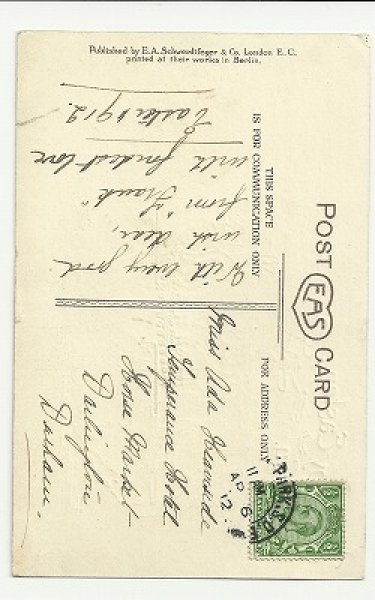 Published by E. A. Schwerdtfeger & Co. London E. C.
printed at their works in Berlin.
POST EAS CARD
THIS SPACE
IS FOR COMMUNICATION ONLY
FOR ADDRESS ONLY
With every good
wish dear,
from "Frank"
with fondest love
Easter 1912.
Miss Ada
Temperance Hotel
Horse Market
Darlington
Durham.
PARK S.O.
11 AM
AP 6
12